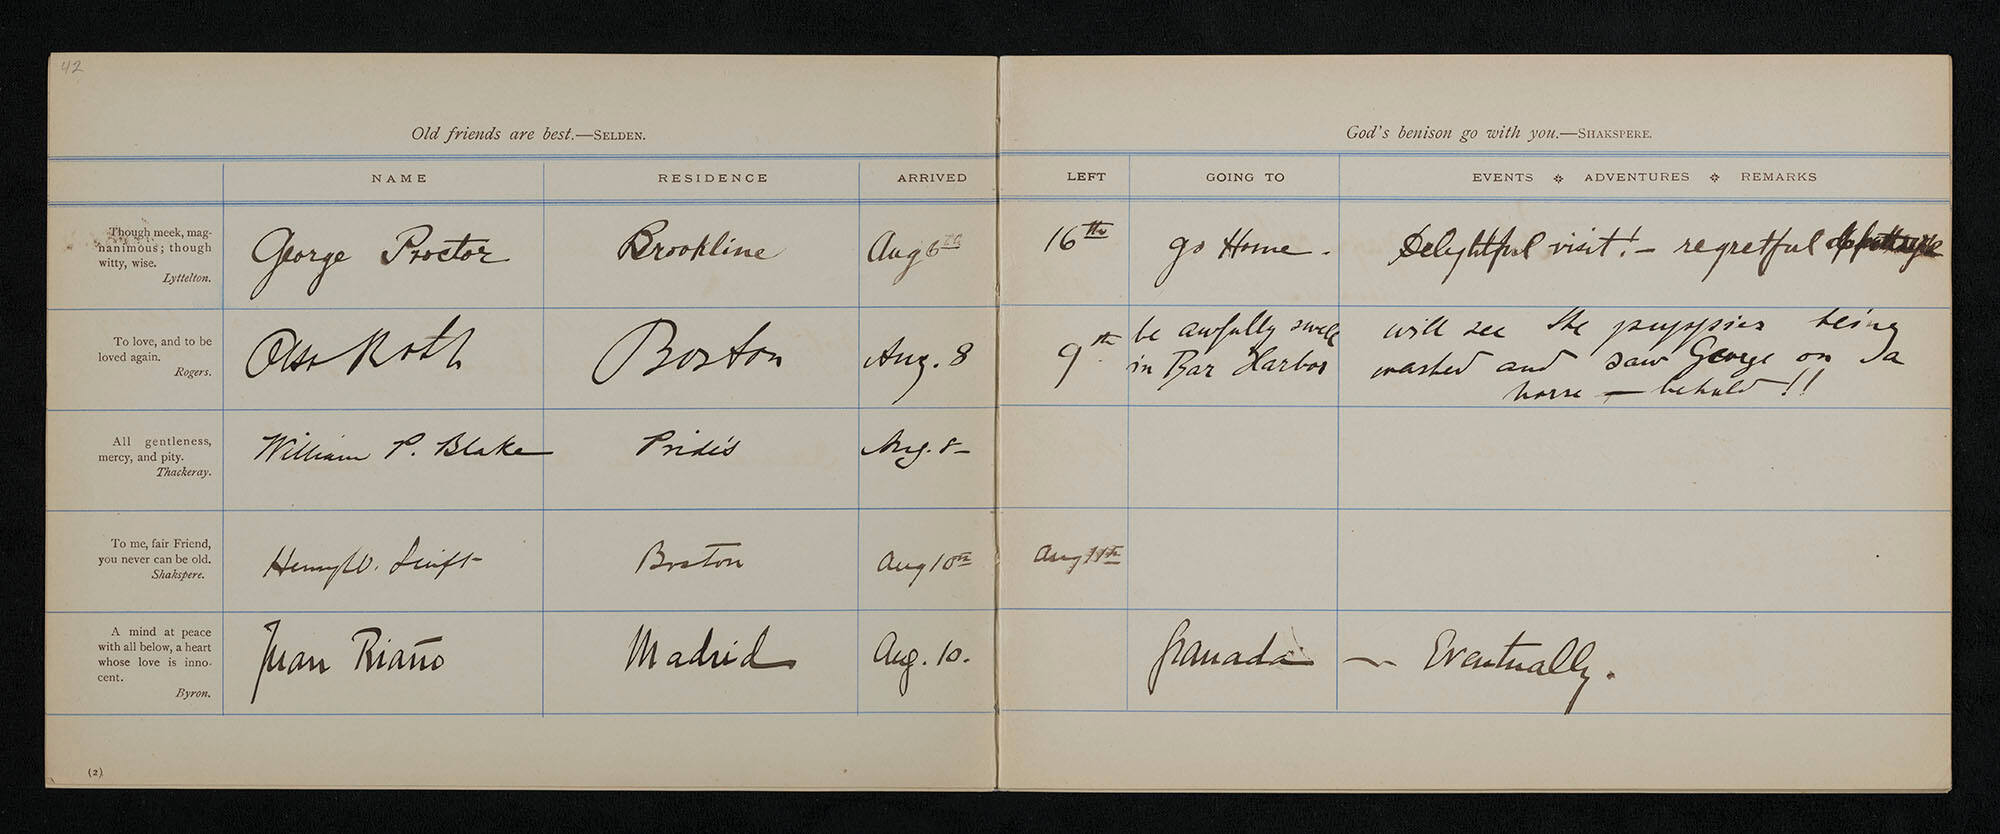 42
Old friends are best.—SELDEN.
God's benison go with you.—SHAKSPERE.
NAME RESIDENCE ARRIVED LEFT GOING TO EVENTS ADVENTURES REMARKS
Though meek, mag-
nanimous; though
witty, wise.
Lyttelton.
George Proctor Brookline Aug 6th 16th go Home - Delightful visit! - regretful
To love, and to be
loved again.
Rogers.
Otto Roth Boston Aug. 8 9th be awfully swell
in Bar Harbor
will see the puppies being
washed and saw George on a
horse — behold!!
All gentleness,
mercy, and pity.
Thackeray.
William P. Blake Pride's Aug. 8-
To me, fair Friend,
you never can be old.
Shakspere.
Henry W. Swift Boston Aug 10th Aug 11th
A mind at peace
with all below, a heart
whose love is inno-
cent.
Byron.
Juan Riaño Madrid Aug. 10. Granada — Eventually.
(2)